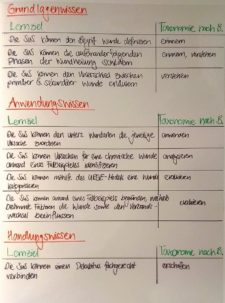 Grundlagenwissen
Lernziel Taxonomie nach B.
Die SuS können den Begriff Wunde definieren erinnern
Die SuS können die aufeinanderfolgenden erinnern, verstehen
Phasen der Wundheilung erläutern
Die SuS können den Unterschied zwischen verstehen
primärer & sekundärer Wunde erklären
Anwendungswissen
Lernziel Taxonomie nach B.
Die SuS können den unters. Wundarten die jeweilige anwenden
Ursache zuordnen
Die SuS können Ursachen für eine chronische Wunde analysieren
anhand eines Fallbeispiels identifizieren
Die SuS können mithilfe des Wunde
Die SuS können anhand eines Fallbeispiels begründen, inwiefern evaluieren
bestimmte Faktoren die Wunde sowie den Verbands-
wechsel beeinflussen
Handlungswissen
Lernziel Taxonomie nach B.
Die SuS können einen Dekubitus fachgerecht erschaffen
verbinden